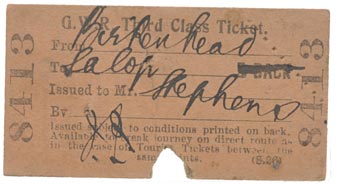 G.W.R. Third Class Ticket.
From Birkenhead
To Salop
BACK
Issued to Mr. Stephens
By
Issued subject to conditions printed on back.
Available to break journey on direct route as
in the case of Tourist Tickets between the
same points. (S.26)
8413
8413